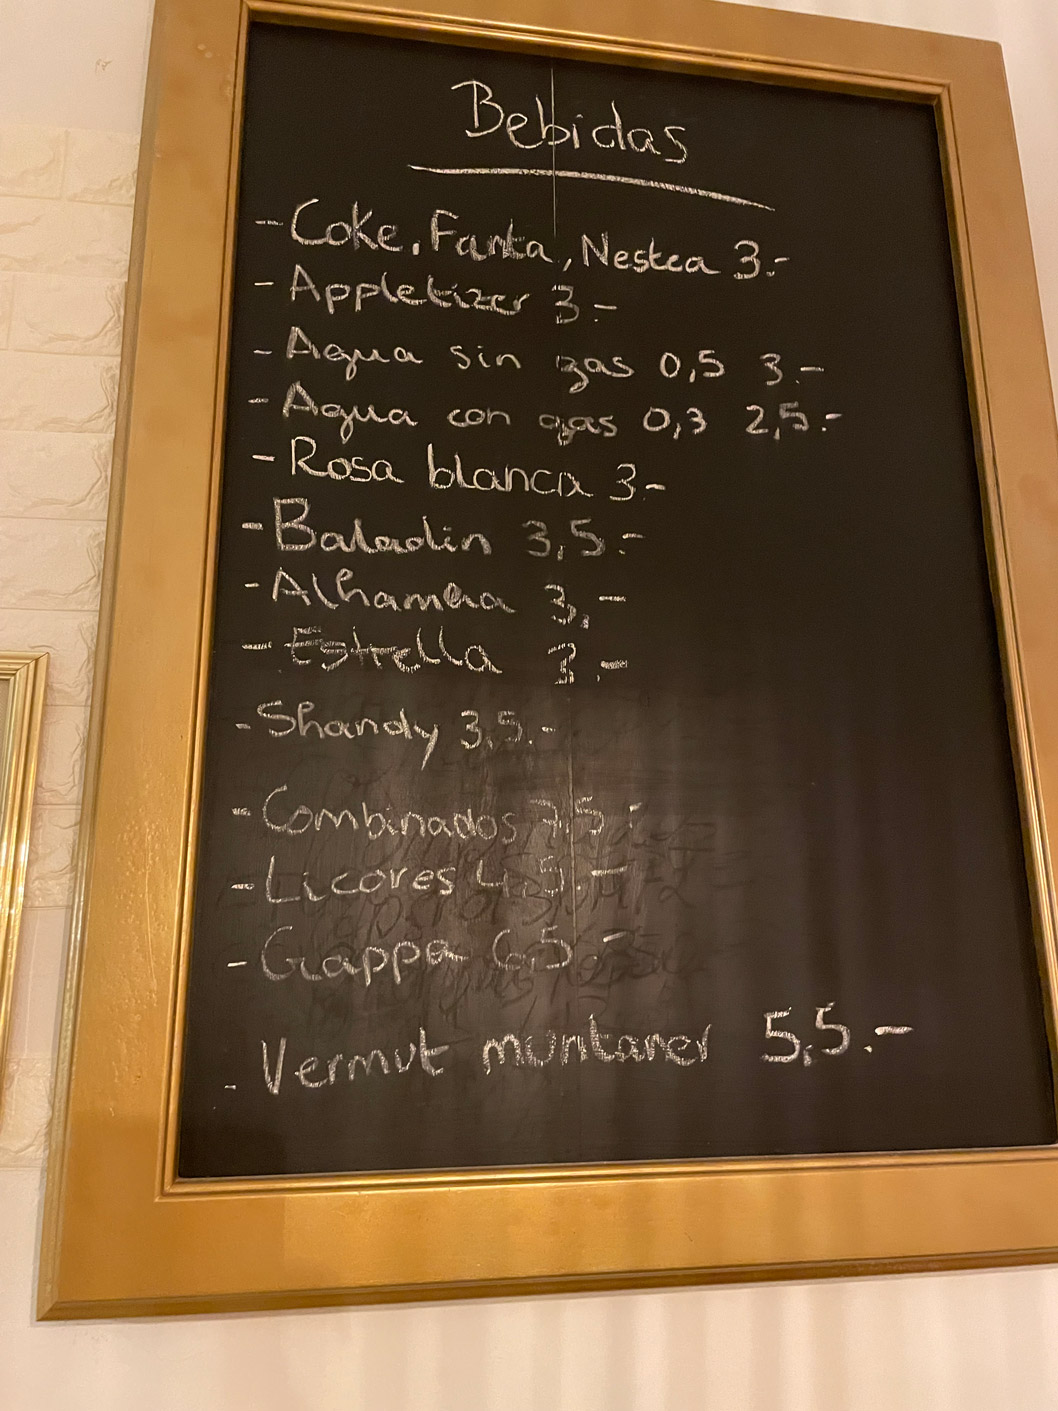 Bebidas
- Coke, Fanta, Nestea 3.-
- Appletizer 3.-
- Agua sin gas 0,5 3.-
- Agua con gas 0,3 2,5.-
- Rosa blanca 3-
- Baladin 3,5.-
- Alhamhra 3,-
- Estrella 3.-
- Shandy 3,5.-
- Combinados 7,5.-
- Licores 4,5.-
- Grappa 6,5.-
- Vermut muntaner 5,5.-